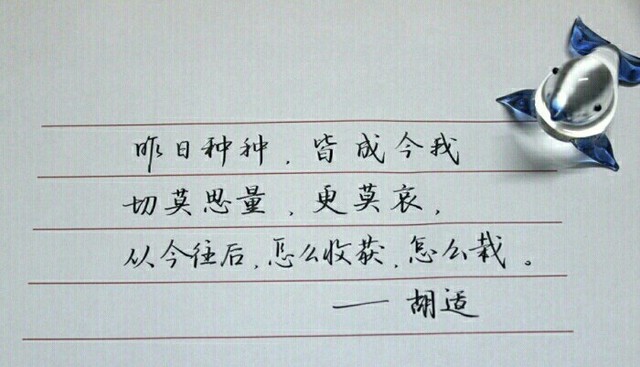 昨日种种，皆成今我
切莫思量，更莫哀，
从今往后，怎么收获，怎么栽。
——胡适